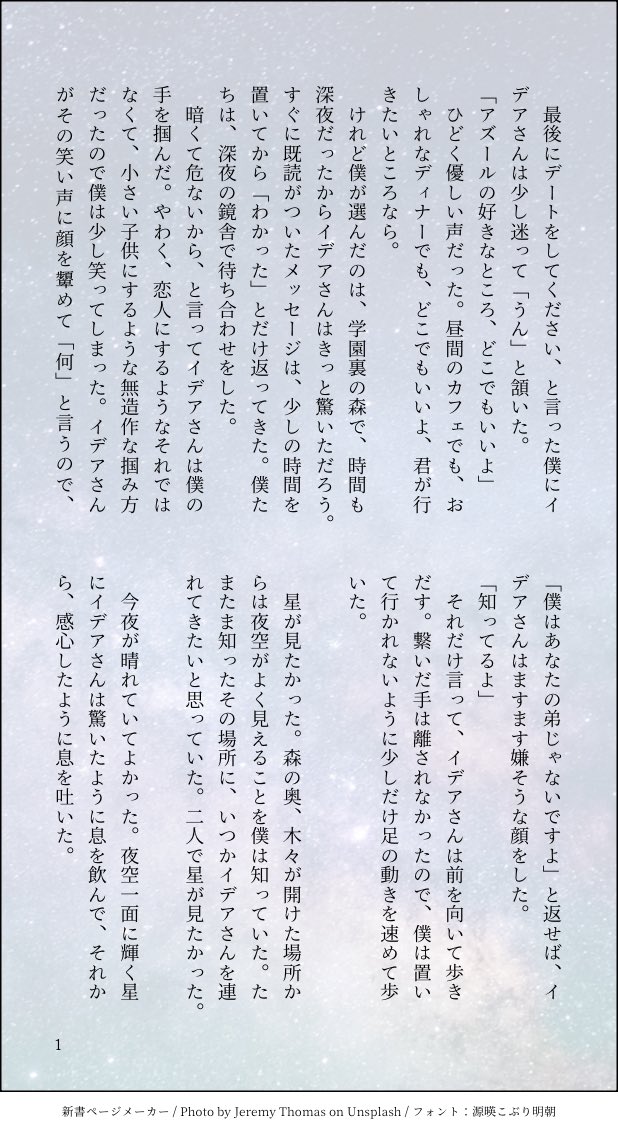 最後にデートをしてください、と言った僕にイ
デアさんは少し迷って「うん」と頷いた。
「アズールの好きなところ、どこでもいいよ」
　ひどく優しい声だった。昼間のカフェでも、お
しゃれなディナーでも、どこでもいいよ、君が行
きたいところなら。
　けれど僕が選んだのは、学園裏の森で、時間も
深夜だったからイデアさんはきっと驚いただろう。
すぐに既読がついたメッセージは、少しの時間を
置いてから「わかった」とだけ返ってきた。僕た
ちは、深夜の鏡舎で待ち合わせをした。
　暗くて危ないから、と言ってイデアさんは僕の
手を掴んだ。やわく、恋人にするようなそれでは
なくて、小さい子供にするような無造作な掴み方
だったので僕は少し笑ってしまった。イデアさん
がその笑い声に顔を顰めて「何」と言うので、
「僕はあなたの弟じゃないですよ」と返せば、イ
デアさんはますます嫌そうな顔をした。
「知ってるよ」
　それだけ言って、イデアさんは前を向いて歩き
だす。繋いだ手は離されなかったので、僕は置い
て行かれないように少しだけ足の動きを速めて歩
いた。
　星が見たかった。森の奥、木々が開けた場所か
らは夜空がよく見えることを僕は知っていた。た
またま知ったその場所に、いつかイデアさんを連
れてきたいと思っていた。二人で星が見たかった。
　今夜が晴れていてよかった。夜空一面に輝く星
にイデアさんは驚いたように息を飲んで、それか
ら、感心したように息を吐いた。
1
新書ページメーカー / Photo by Jeremy Thomas on Unsplash / フォント：源暎こぶり明朝